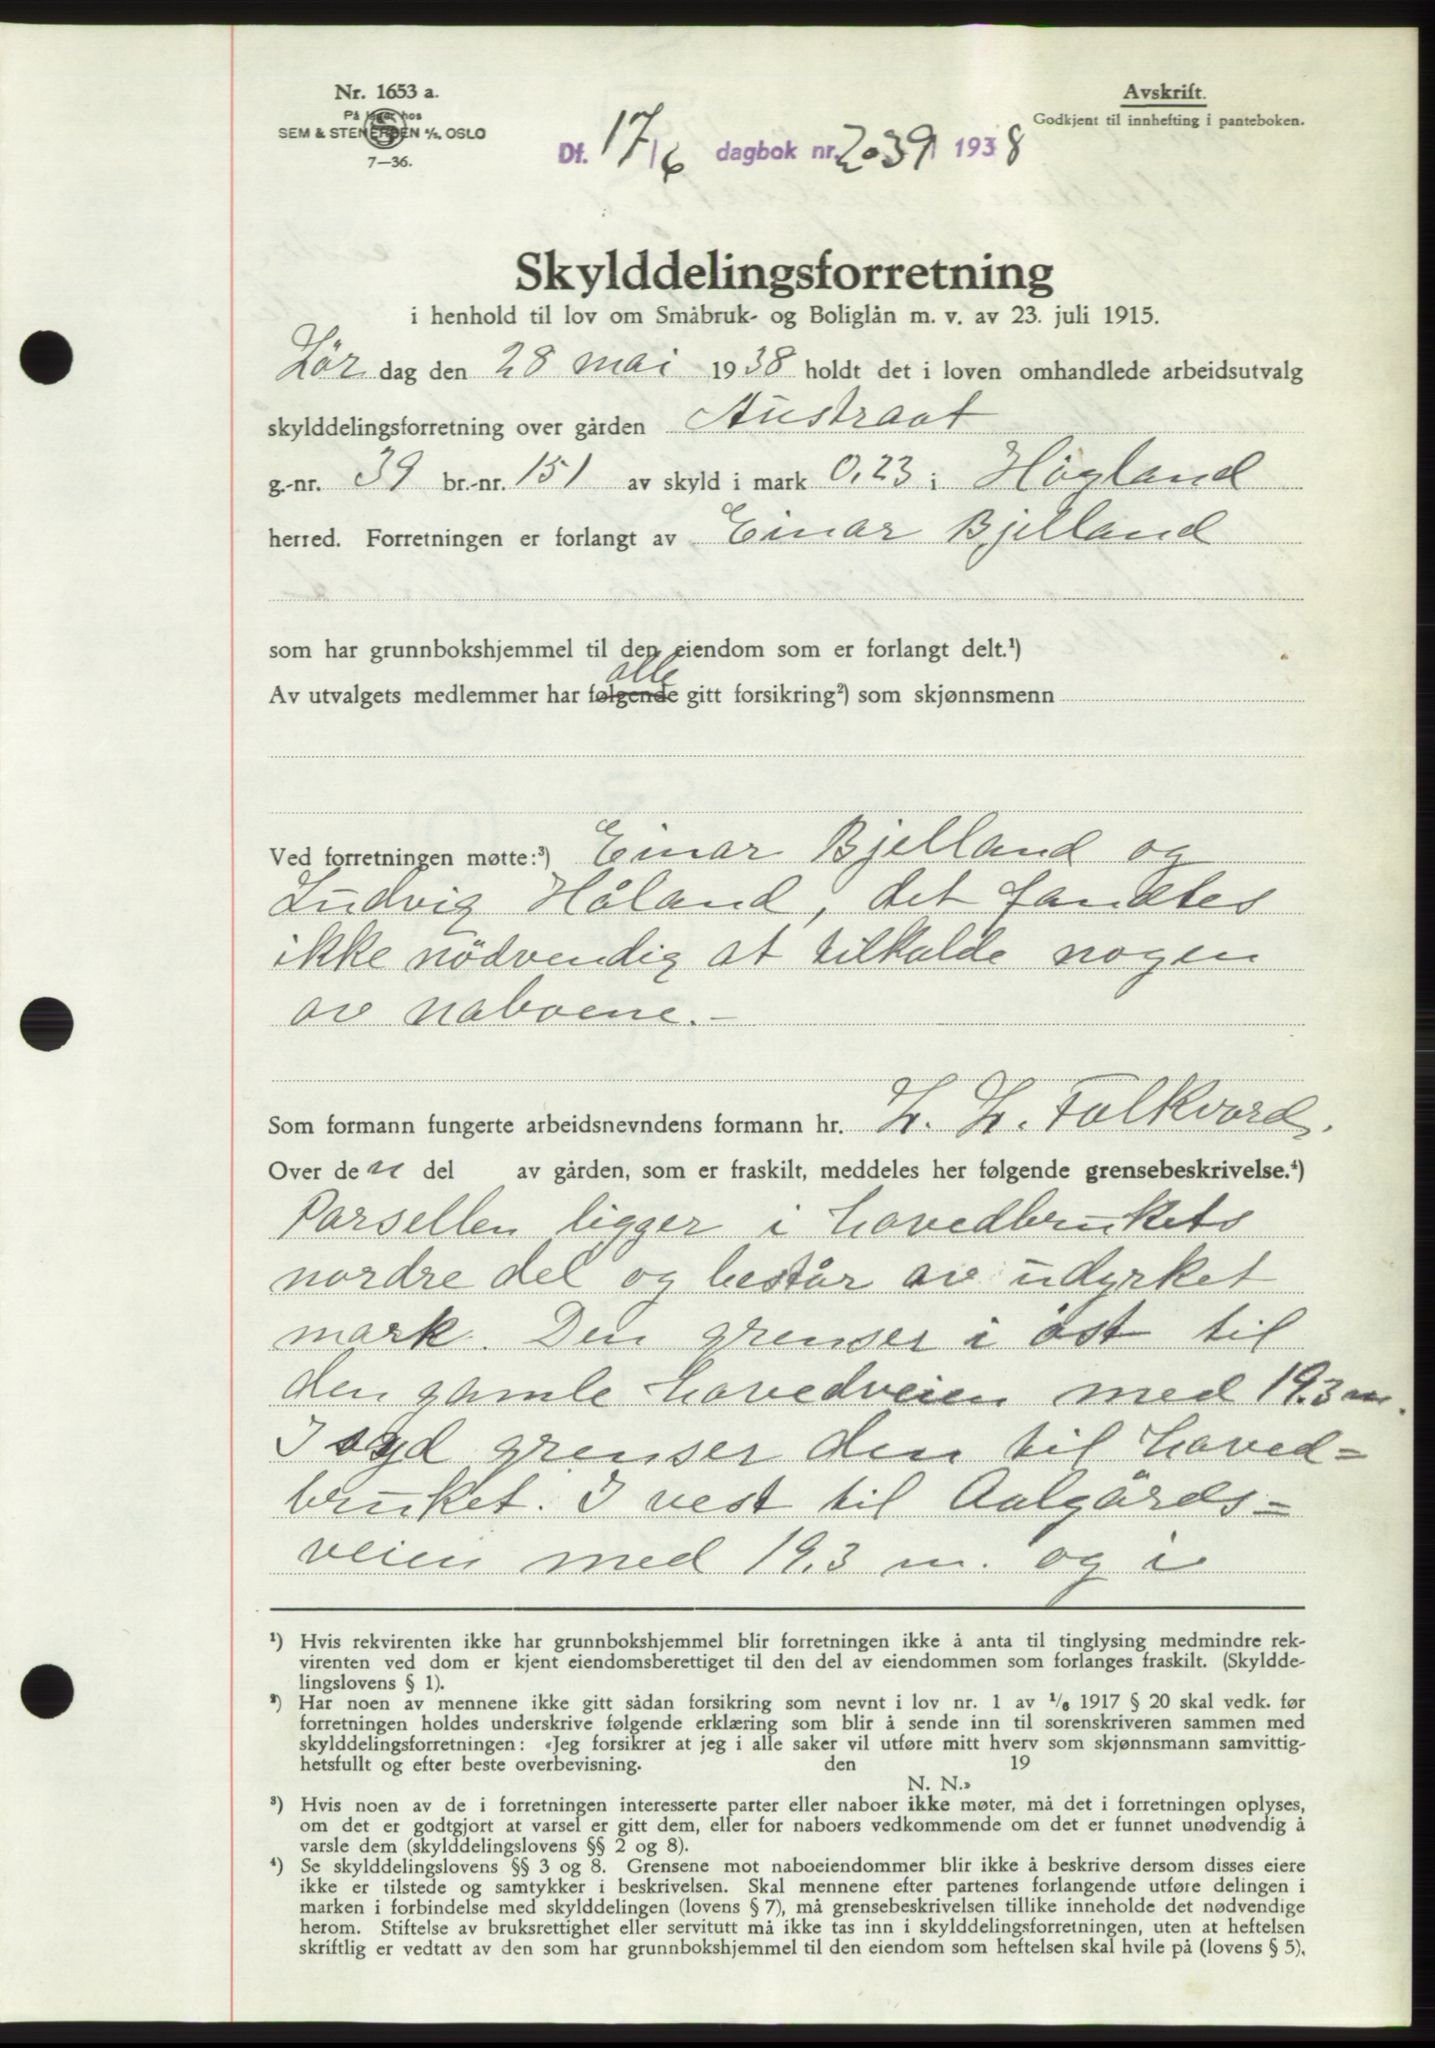 Nr. 1653 a.
På lager hos
SEM & STENERSEN A/S, OSLO
7—36.
Avskrift.
Godkjent til innhefting i panteboken.
Df. 17/6 dagbok nr. 2039 1938
Skylddelingsforretning
i henhold til lov om Småbruk- og Boliglån m. v. av 23. juli 1915.
Lör dag den 28 mai 1938 holdt det i loven omhandlede arbeidsutvalg
skylddelingsforretning over gården Austraat
g.-nr. 39 br.-nr. 151 av skyld i mark 0,23 i Högland
herred. Forretningen er forlangt av Einar Bjelland
som har grunnbokshjemmel til den eiendom som er forlangt delt.¹)
alle
Av utvalgets medlemmer har følgende gitt forsikring²) som skjønnsmenn
Ved forretningen møtte:³) Einar Bjelland og
Ludvig Håland, det fandtes
ikke nödvendig at tilkalde nogen
av naboene.-
Som formann fungerte arbeidsnevndens formann hr. L. L. Folkvord.
Over den del av gården, som er fraskilt, meddeles her følgende grensebeskrivelse.⁴)
Parsellen ligger i hovedbrukets
nordre del og består av udyrket
mark. Den grenser i øst til
den gamle hovedveien med 19.3 m.
I syd grenser den til hoved=
bruket. I vest til Aalgårds=
veien med 19,3 m. og i
¹) Hvis rekvirenten ikke har grunnbokshjemmel blir forretningen ikke å anta til tinglysing medmindre rek-
virenten ved dom er kjent eiendomsberettiget til den del av eiendommen som forlanges fraskilt. (Skyldde-
lingslovens § 1).
²) Har noen av mennene ikke gitt sådan forsikring som nevnt i lov nr. 1 av 1/6 1917 § 20 skal vedk. før
forretningen holdes underskrive følgende erklæring som blir å sende inn til sorenskriveren sammen med
skylddelingsforretningen: «Jeg forsikrer at jeg i alle saker vil utføre mitt hverv som skjønnsmann samvittig-
hetsfullt og efter beste overbevisning. den 19
N. N.»
³) Hvis noen av de i forretningen interesserte parter eller naboer ikke møter, må det i forretningen oplyses,
om det er godtgjort at varsel er gitt dem, eller for naboers vedkommende om det er funnet unødvendig å
varsle dem (skylddelingslovens §§ 2 og 8).
⁴) Se skylddelingslovens §§ 3 og 8. Grensene mot naboeiendommer blir ikke å beskrive dersom disses eiere
ikke er tilstede og samtykker i beskrivelsen. Skal mennene efter partenes forlangende utføre delingen i
marken i forbindelse med skylddelingen (lovens § 7), må grensebeskrivelsen tillike inneholde det nødvendige
herom. Stiftelse av bruksrettighet eller servitutt må ikke tas inn i skylddelingsforretningen, uten at heftelsen
skriftlig er vedtatt av den som har grunnbokshjemmel til den eiendom som heftelsen skal hvile på (lovens § 5).